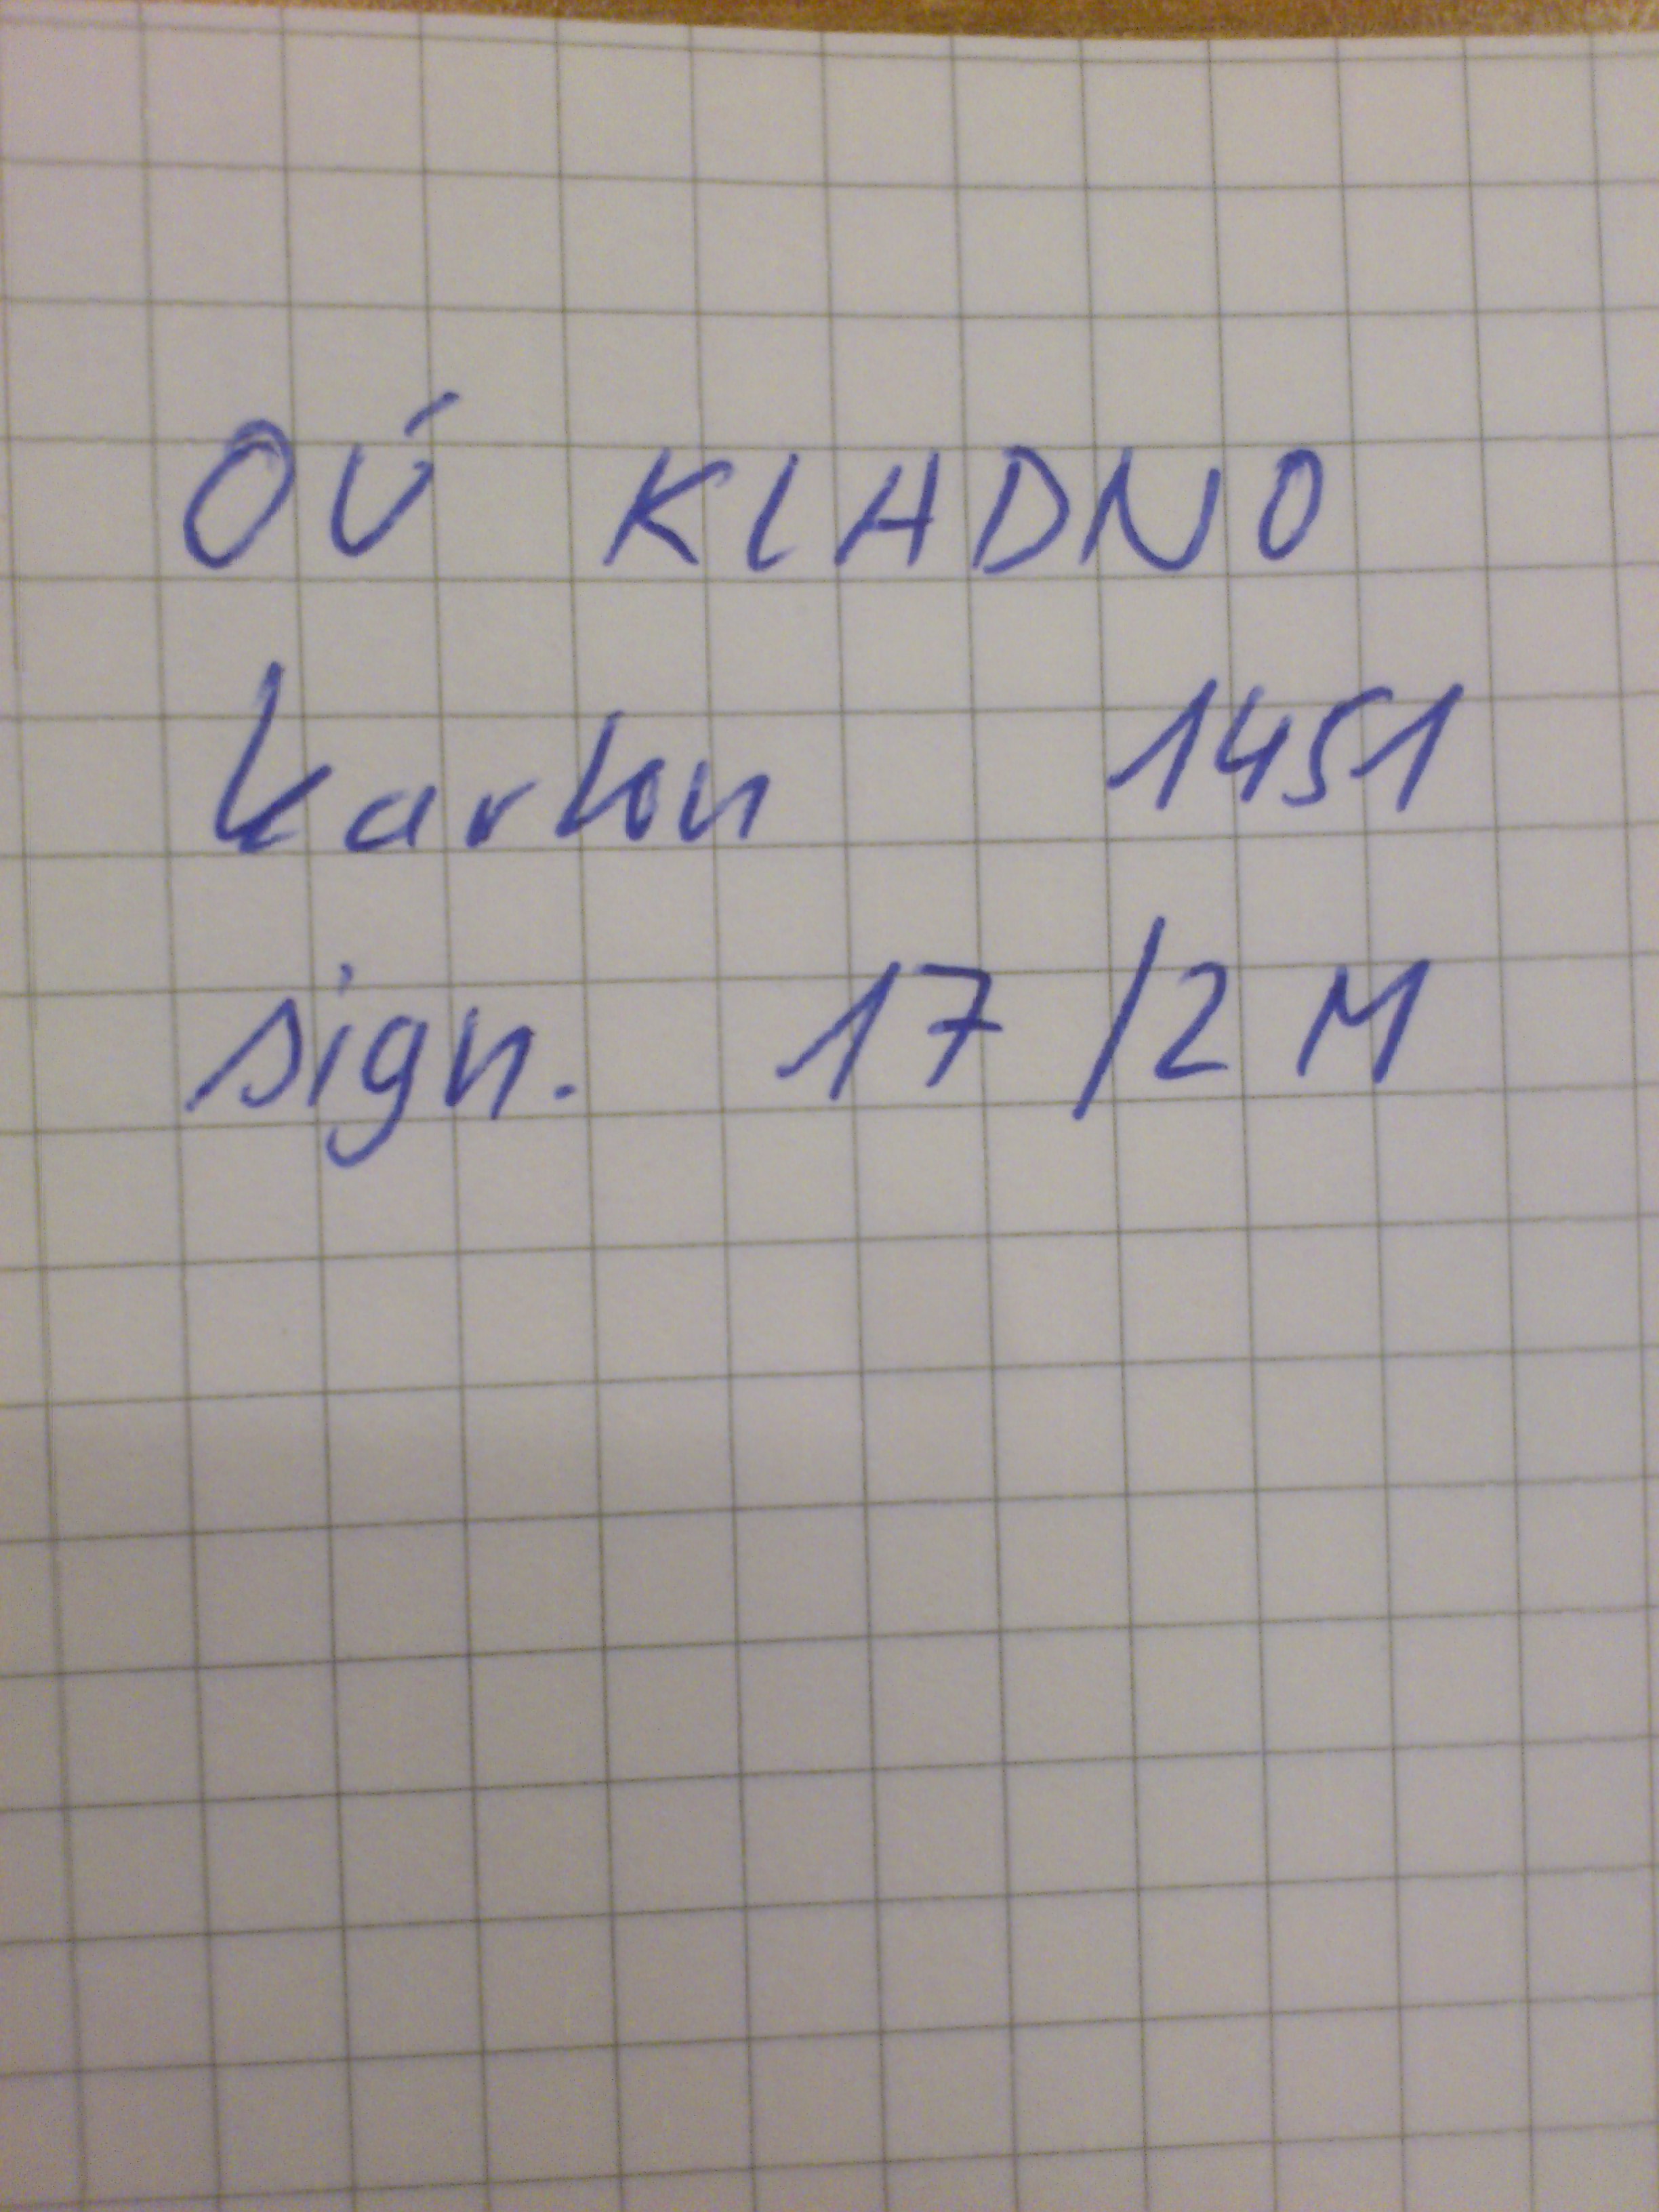 OÚ KLADNO
karton 1451
sign. 17/2 M